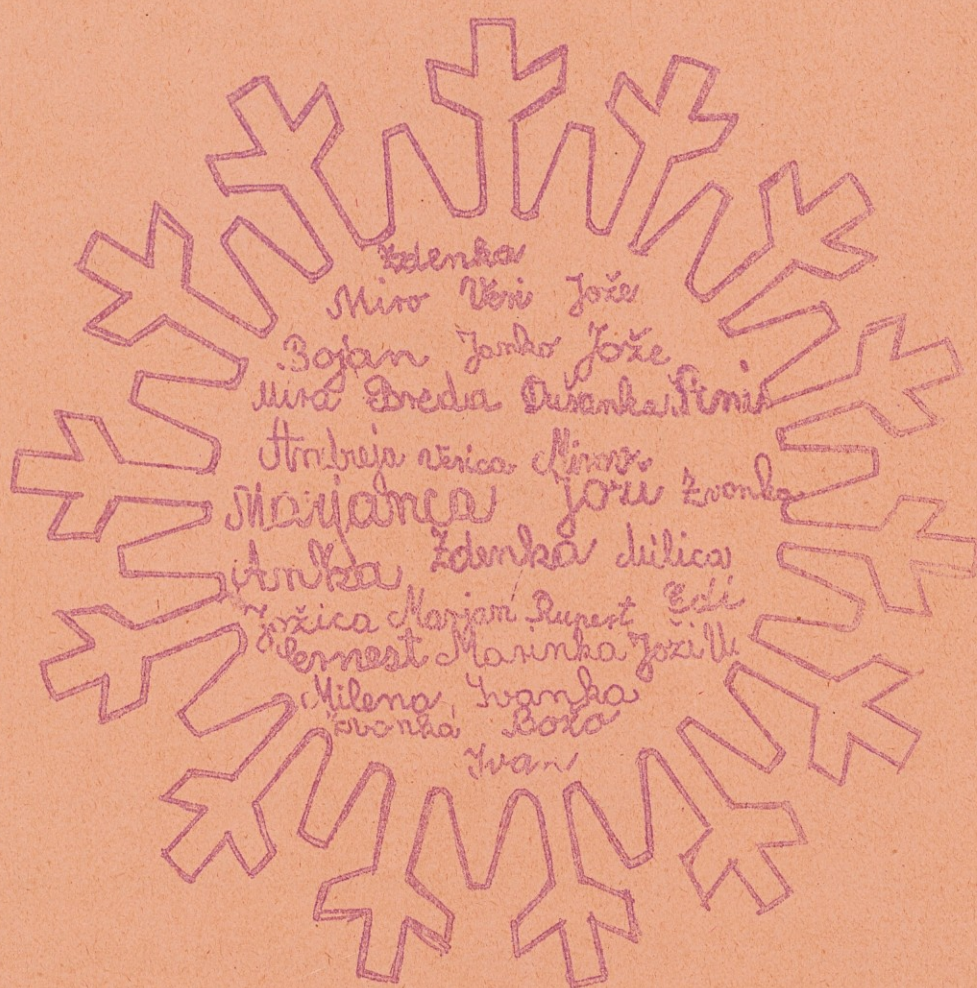 Zdenka
Miro Veri Jože
Bojan Janko Jože
Mira Breda Dušanka
Andreja Verica
Marjanca Joži Zvonko
Anka Zdenka Milica
Jožica Marjan Rupert Edi
Ernest Marinka Joži U.
Milena, Ivanka
Zvonka Božo
Ivan